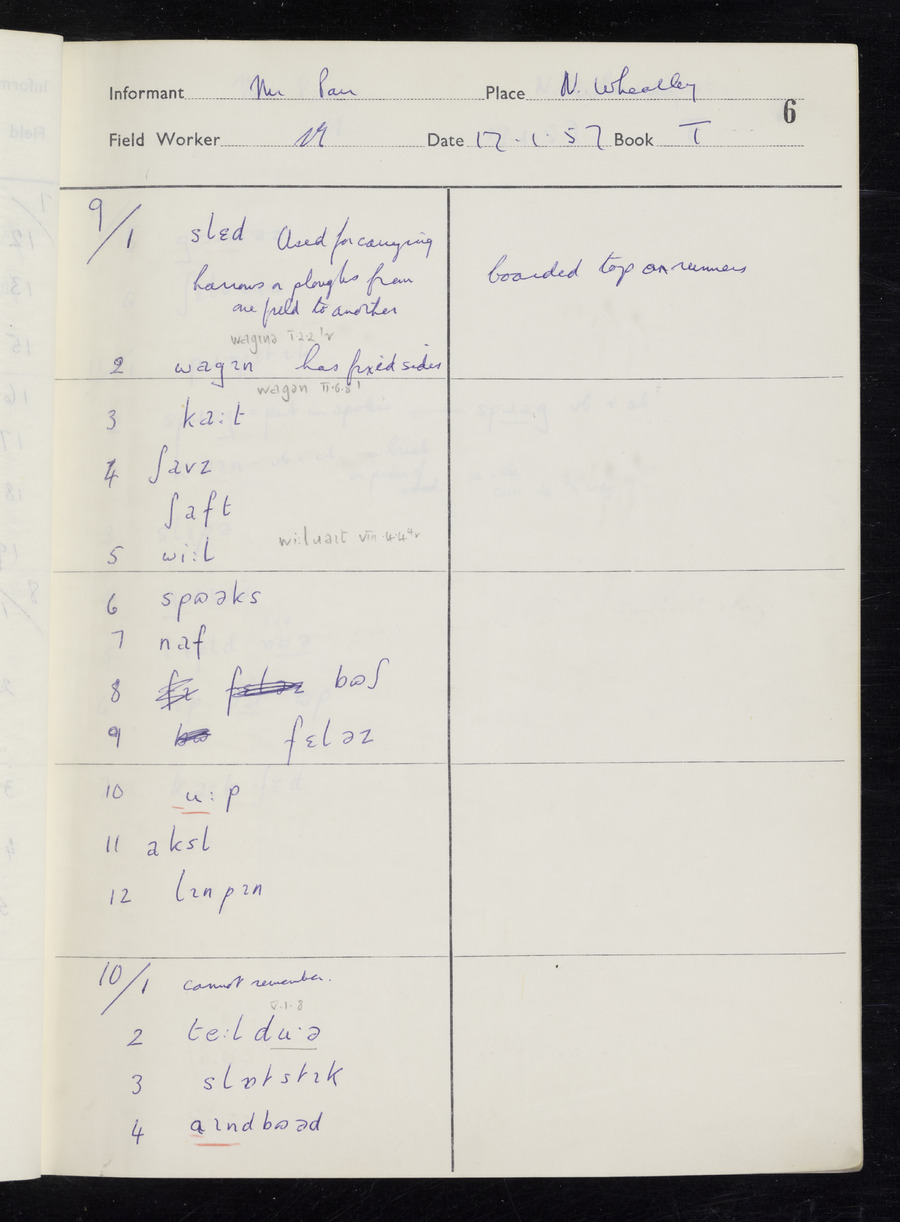 Informant Mr Parr Place N. Wheatley
6
Field Worker Date 17.1.57 Book I
9/1 slɛd Used for carrying
harrows or ploughs from boarded top on runners
one field to another
wagɪnə I 2.2
2 wagɪn has fixed sides
wagən II.6.8
3 kaːt
4 ʃavz
ʃaft
5 wiːl wiːluaɪt VIII.4.4
6 spɷəks
7 naf
8 bɷʃ
9 fɛləz
10 uːp
11 aksl
12 lɪnpɪn
10/1 cannot remember.
V.1.8
2 teːl duˑə
3 slɒtstɪk
4 aɪndbɷəd